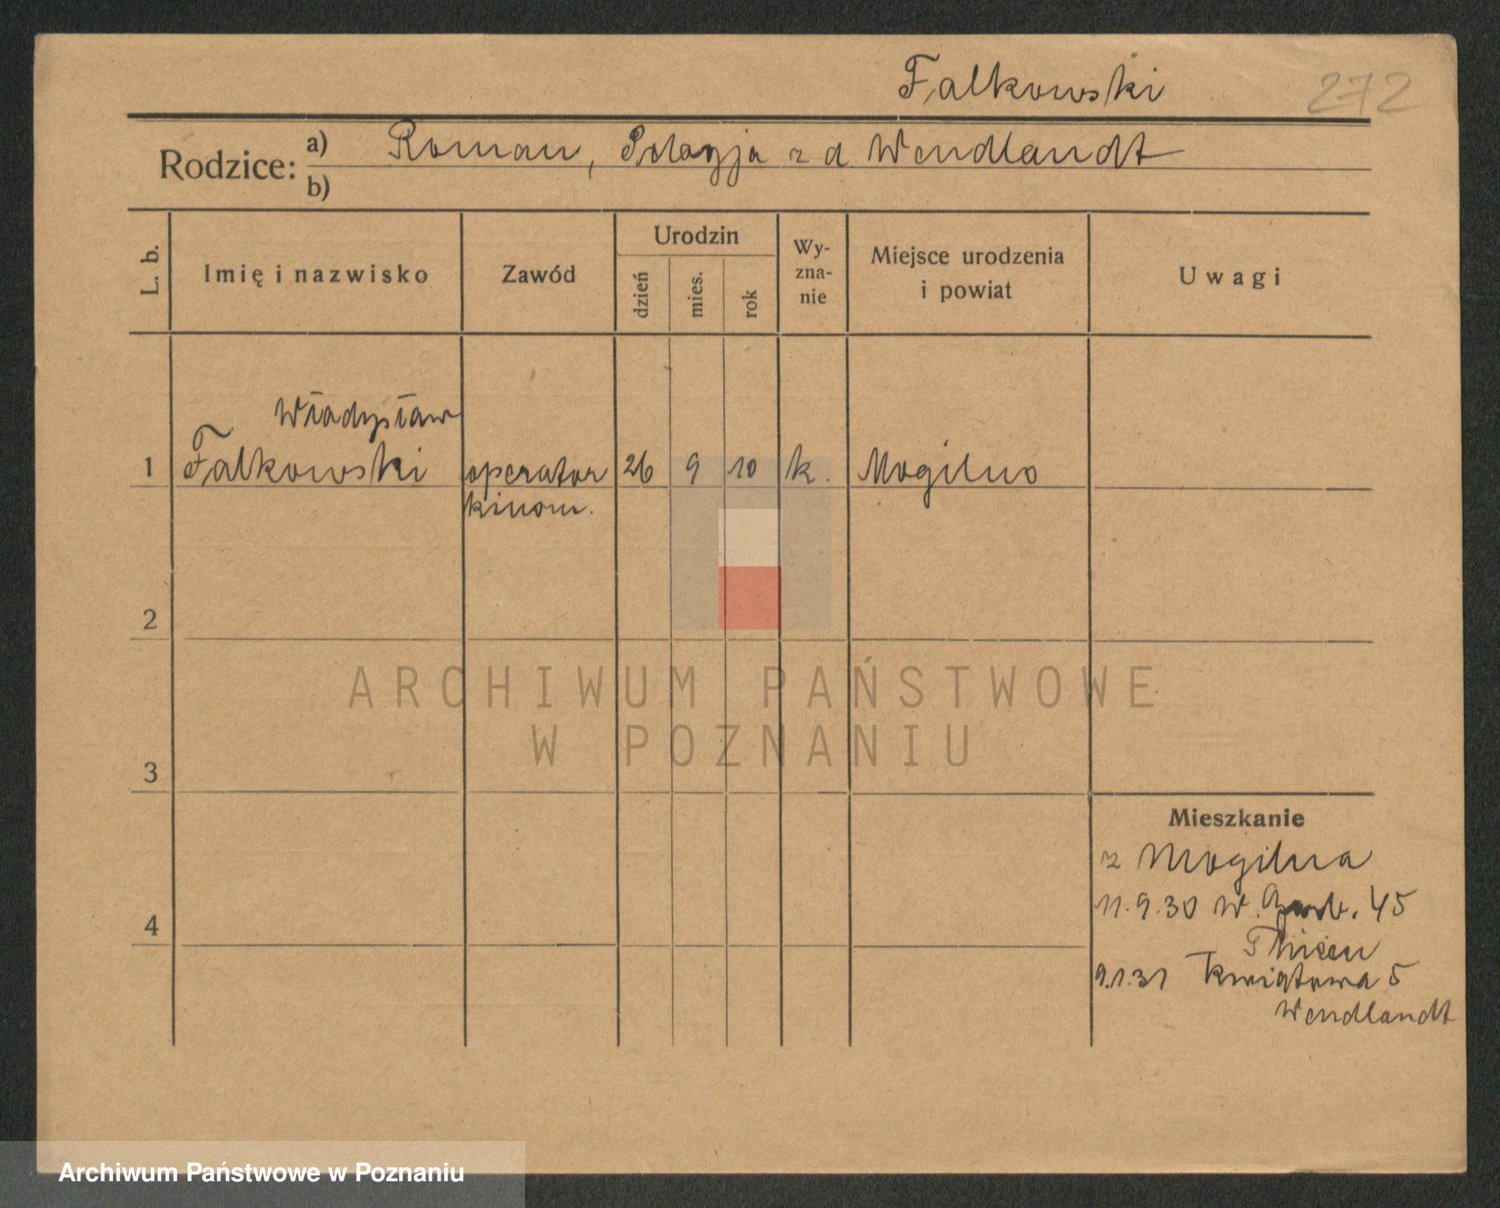 Falkowski 272
Rodzice: a) Roman, Pelagja z d Wendlandt
b)
L. b.
Imię i nazwisko
Zawód
Urodzin
dzień
mies.
rok
Wy-
zna-
nie
Miejsce urodzenia
i powiat
Uwagi
Władysław
1 Falkowski operator 26 9 10 k. Mogilno
kinom.
2
ARCHIWUM PAŃSTWOWE
W POZNANIU
3
Mieszkanie
z Mogilna
11.9.30 W. Garb. 45
4
9.1.31 Kwiatowa 5
Wendlandt
Archiwum Państwowe w Poznaniu